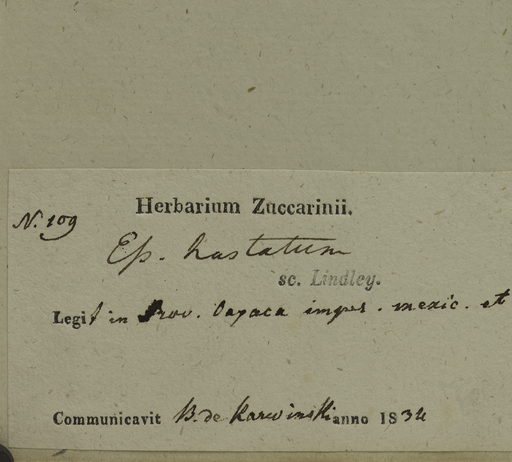 Herbarium Zuccarinii.
N. 109
Ep. hastatum
sc. Lindley.
Legit in Prov. Oaxaca imper. mexic. et
Communicavit B. de Karwinski anno 1834